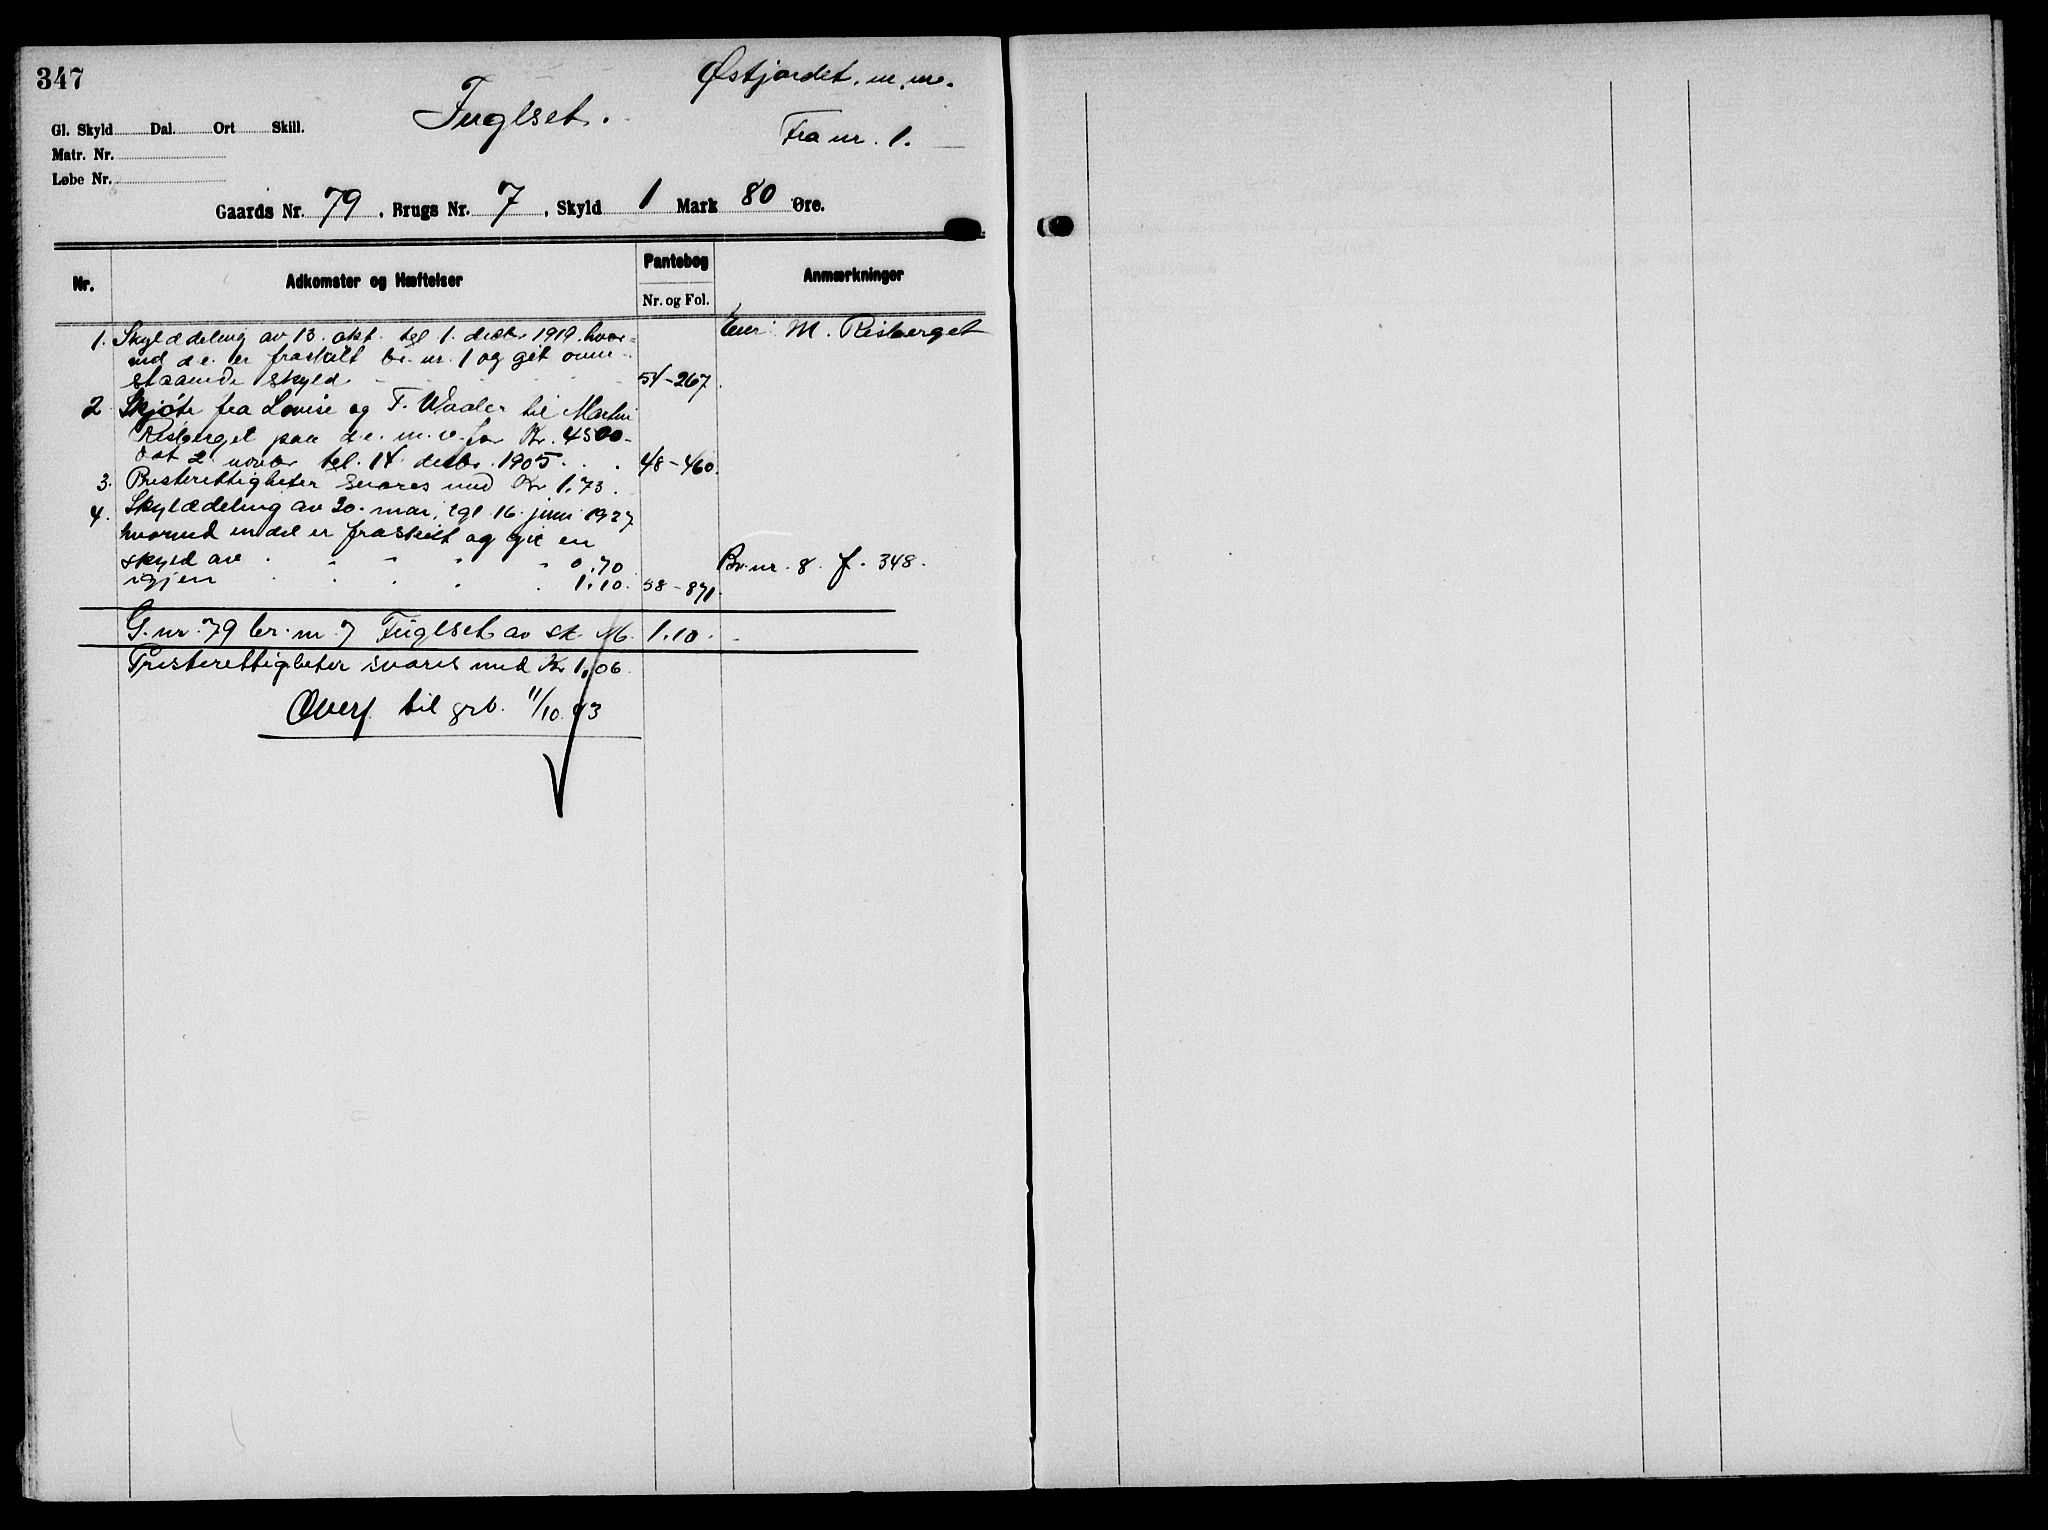 347
Østjordet. m. m.
Fuglset.
Fra nr. 1.
Gl. Skyld Dal. Ort Skill.
Matr. Nr.
Løbe Nr.
Gaards Nr. 79, Brugs Nr. 7, Skyld 1 Mark 80 Øre.
Nr. Adkomster og Hæftelser Pantebog Nr. og Fol. Anmærkninger
1. Skylddeling av 13. okt. tgl 1. decbr 1919. hvor- Eier: M. Risberget
ved d.e. er fraskilt br. nr. 1 og git oven-
staaende skyld 54-267.
2 Skjøte fra Lovise og T. Waaler til Martin
Risberget paa d.e. m. v. for Kr. 4500-
dat 2 novbr tgl. 14 decbr. 1905. 48-460.
3. Presterettigheter svares med Kr 1.73.
4. Skylddeling av 20. mai, tgl 16. juni 1927
hvorved en del er fraskilt og git en
skyld av 0.70 Br. nr. 8. f. 348.
igjen 1.10. 58-871.
G. nr. 79 br. nr 7 Fuglset av sk. M. 1.10.
Presterettigheter svares med Kr 1.06.
Overf. til grb. 11/10. 43